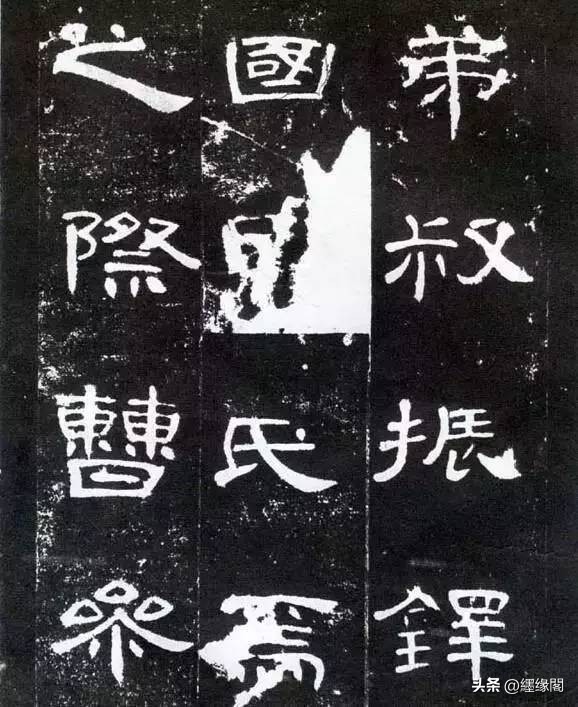 弟叔振鐸
國氏焉
之際曹參
头条 @纆缘閣